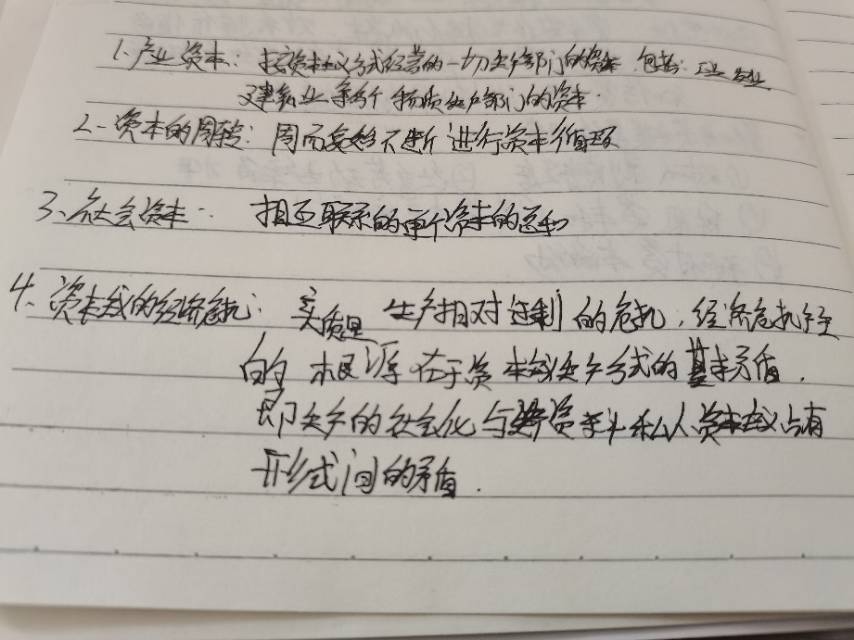 1. 产业资本: 按资本主义方式经营的一切生产部门的资本. 包括: 工业 农业
建筑业等各个物质生产部门的资本.
2. 资本的周转: 周而复始不断进行资本循环
3、社会资本: 相互联系的单个资本的总和
4、资本主义的经济危机: 实质是 生产相对过剩的危机, 经济危机产生
的根源在于资本主义生产方式的基本矛盾.
即生产的社会化与 私人资本主义占有
形式间的矛盾.